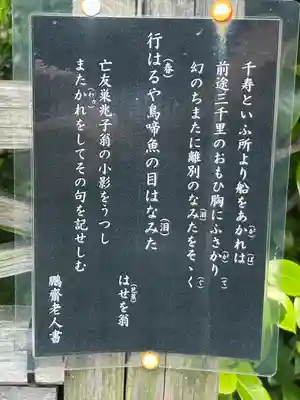 千寿といふ所より船をあかれは(が)(ば)
前途三千里のおもひ胸にふさかり(が)て
幻のちまたに離別のなみたをそゝく(泪)(ぐ)
行はるや鳥啼魚の目はなみた(春)(泪)
亡友巣兆子翁の小影をうつし
またかれをしてその句を記せしむ
はせを翁(芭蕉)
鵬齋老人書